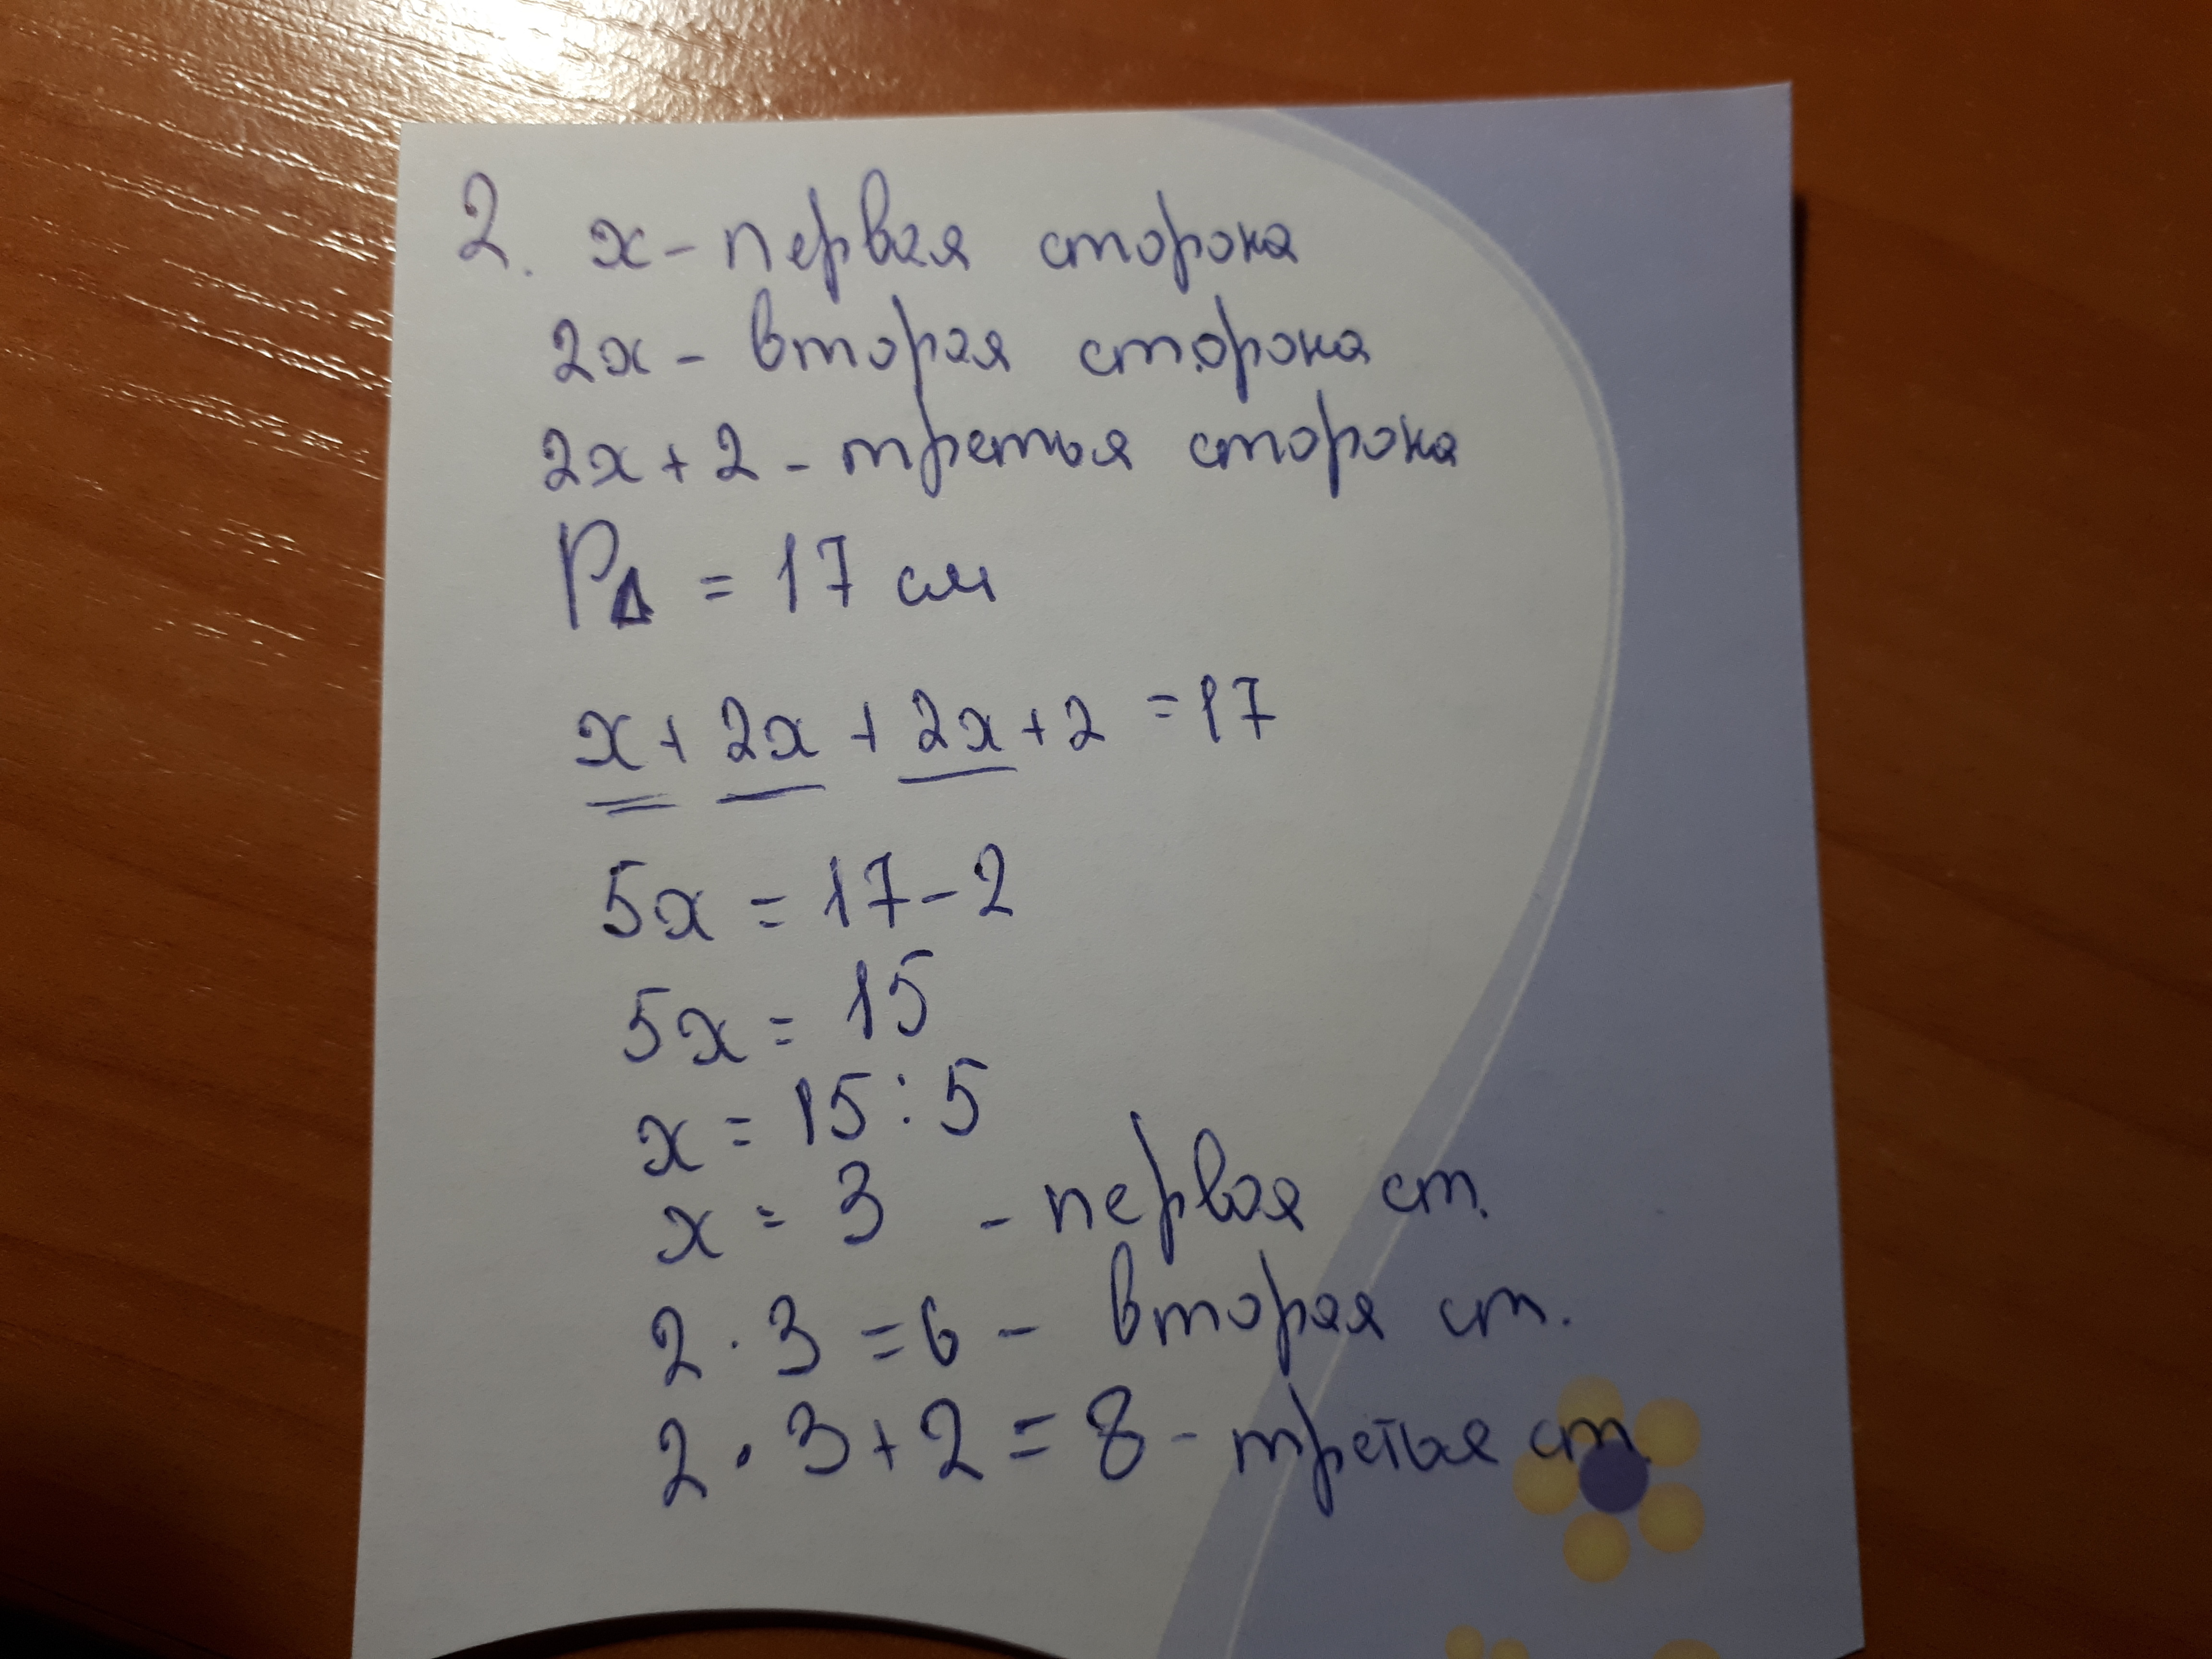 2. x - первая сторона
2x - вторая сторона
2x + 2 - третья сторона
P∆ = 17 см
x + 2x + 2x + 2 = 17
5x = 17 - 2
5x = 15
x = 15 : 5
x = 3 - первая ст.
2 · 3 = 6 - вторая ст.
2 · 3 + 2 = 8 - третья ст.